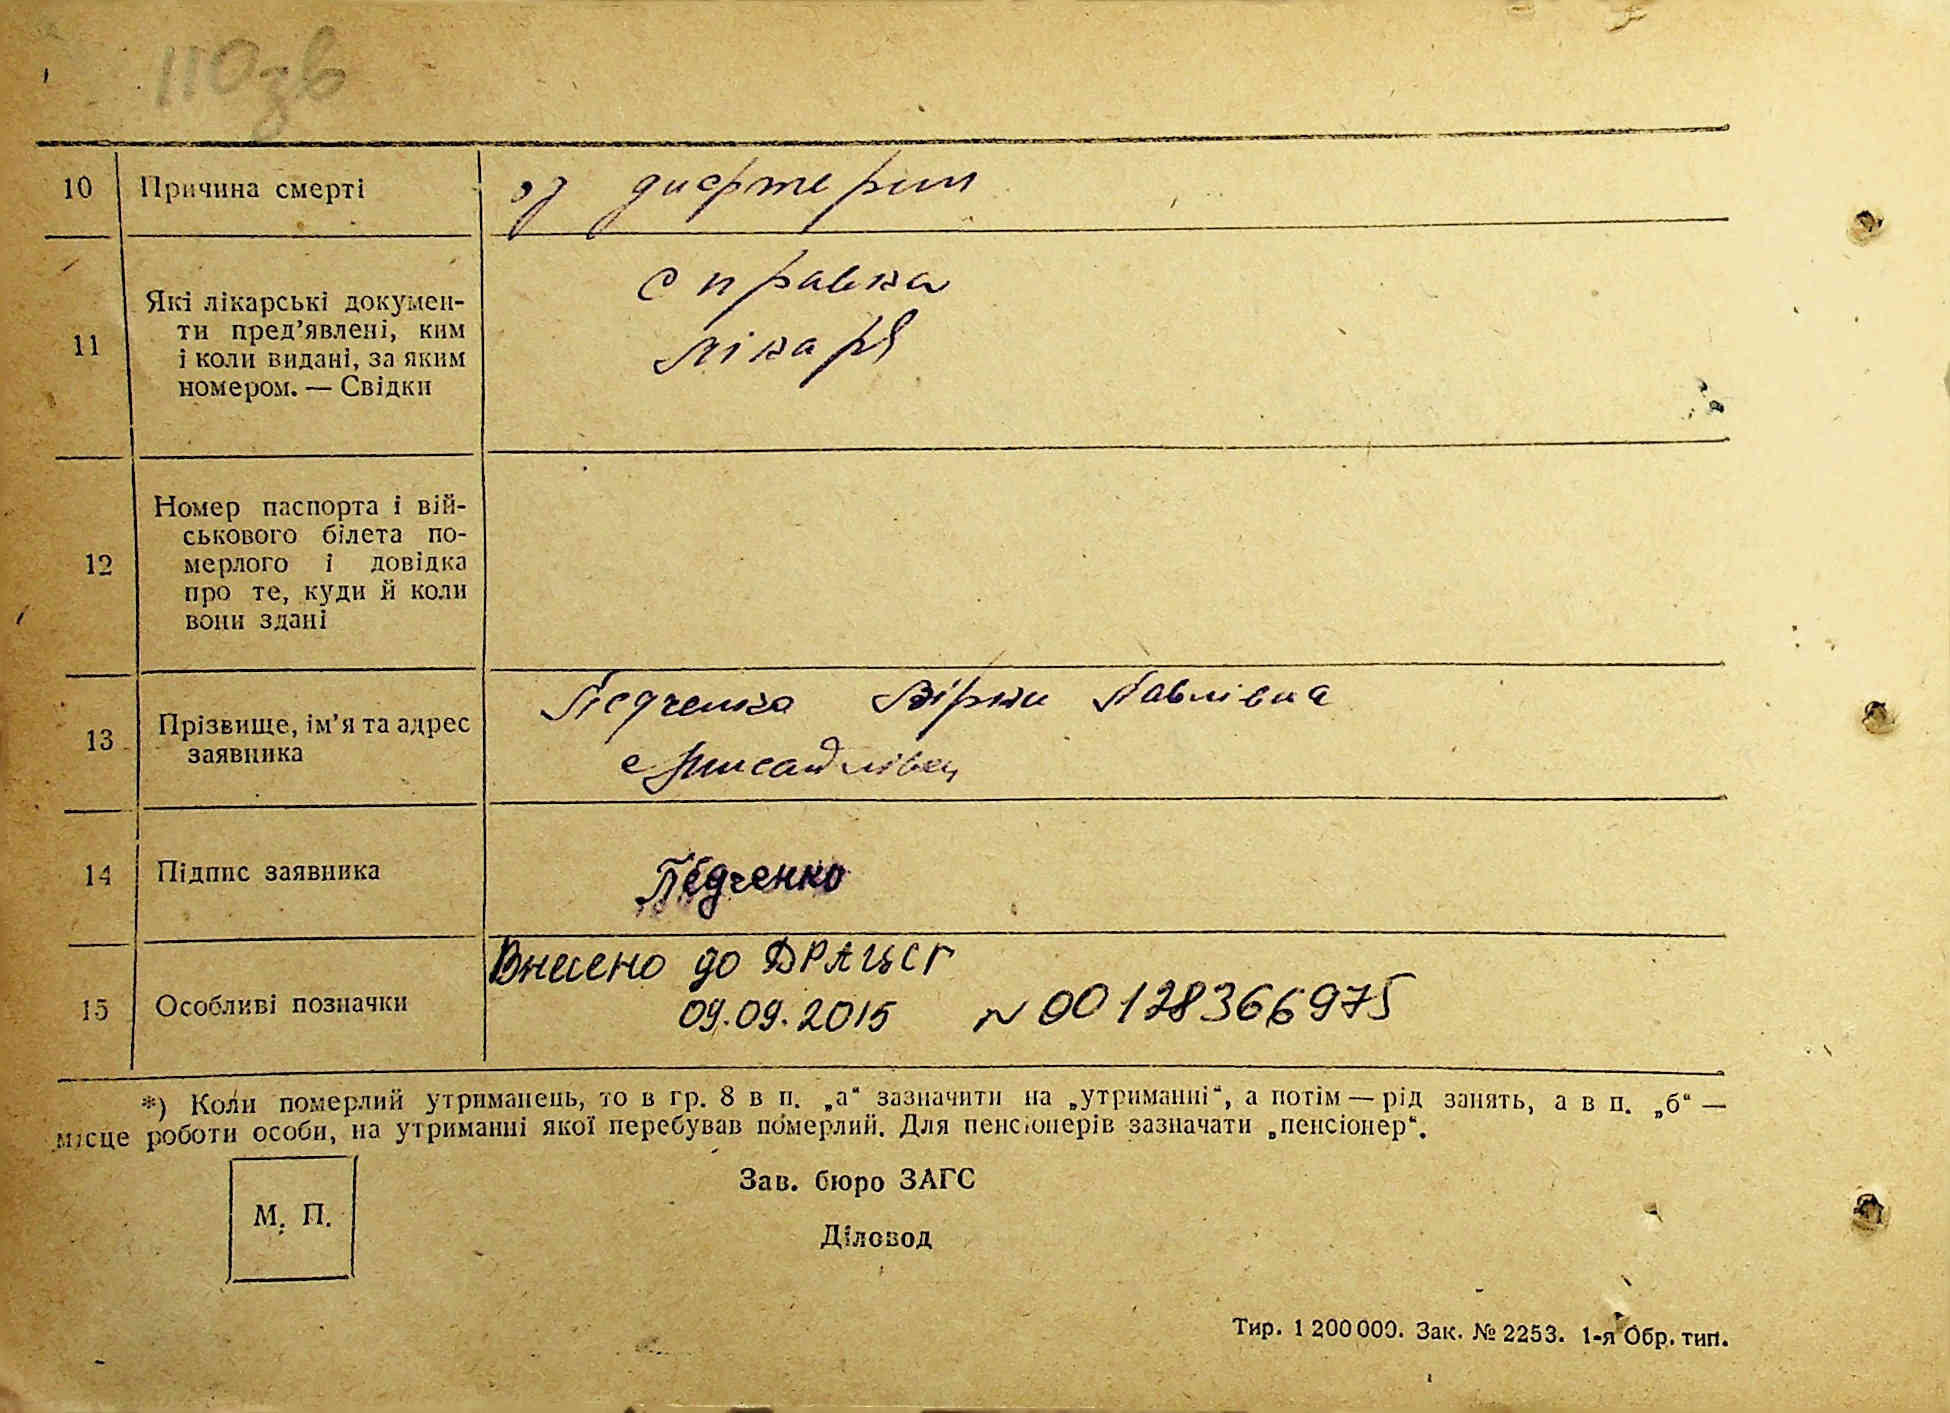 110зв
10 Причина смерті
од дифтерии
11 Які лікарські докумен-
ти пред’явлені, ким
і коли видані, за яким
номером. — Свідки
справка
лікаря
12 Номер паспорта і вій-
ськового білета по-
мерлого і довідка
про те, куди й коли
вони здані
13 Прізвище, ім’я та адрес
заявника
Педченко Вірки Павлівна
с
14 Підпис заявника
Педченко
15 Особливі позначки
Внесено до ДРАЦСГ
09.09.2015 N 00128366975
*) Коли померлий утриманець, то в гр. 8 в п. „а“ зазначити на „утриманні“, а потім — рід занять, а в п. „б“ —
місце роботи особи, на утриманні якої перебував померлий. Для пенсіонерів зазначати „пенсіонер“.
М. П.
Зав. бюро ЗАГС
Діловод
Тир. 1 200 000. Зак. № 2253. 1-я Обр. тип.